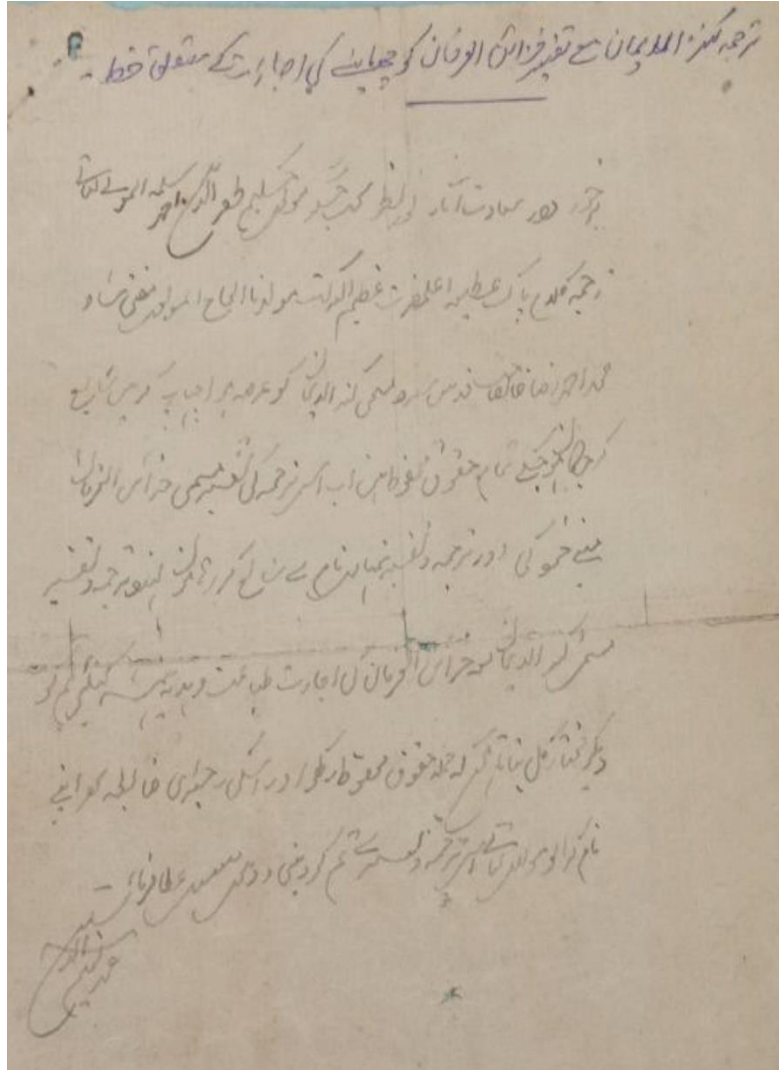 ترجمہ کنز الایمان مع تفسیر خزائن العرفان کو چھاپنے کی اجازت کے متعلق خط۔
برخوردار سعادت آثار نور نظر لخت جگر مولوی حکیم ظفر الدین احمد سلمہ المولیٰ تعالیٰ
ترجمہ کلام پاک اعلیٰحضرت عظیم البرکت مولانا الحاج المولوی مفتی شاہ
محمد احمد رضا خانصاحب قدس سرہ مسمی کنز الایمان کو عرصہ ہوا میں شایع
تمام حقوق محفوظ ہیں اب اس ترجمہ کی تفسیر مسمی خزائن العرفان
مینے خود کی اور ترجمہ و تفسیر نام سے شایع ترجمہ و تفسیر
مسمی کنز الایمان و خزائن العرفان کی اجازت طباعت و ہدیہ ہمیشہ کیلئے تم کو
دیکر مختار کل بناتا ہوں کہ جملہ حقوق محفوظ رکھو اور اسکی رجسٹری ضابطہ اپنے
نام کرالو مولیٰ تعالیٰ ترجمہ و تفسیر سے تم کو دینی و دنیوی عطا فرمائے
محمد نعیم الدین